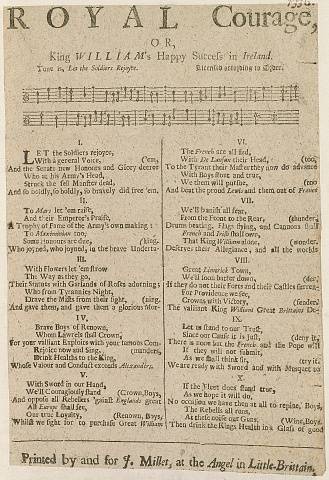 ROYAL Courage,
OR,
King WILLIAM's Happy Success in Ireland.
Tune is, Let the Soldiers Rejoyce. Licensed according to Order.
I.
LET the Soldiers rejoyce,
With a general Voice, ('em,
And the Senate new Honours and Glory decree
Who at his Army's Head,
Struck the fell Monster dead,
And so boldly, so boldly, so bravely did free 'em.
II.
To Mars let 'em raise,
And their Emperor's Praise,
A Trophy of Fame of the Army's own making :
To Maximinian too;
Some Honours are due, (king.
Who joyned, who joyned, in the brave Underta-
III.
With Flowers let 'em strow
The Way as they go,
Their Statues with Garlands of Roses adorning;
Who from Tyrannies Night,
Drave the Mists from their sight, (ning.
And gave them, and gave them a glorious Mor-
IV.
Brave Boys of Renown,
Whom Lawrels shall Crown,
For your valliant Exploits with your famous Com-
Rejoyce now and Sing, (manders,
Drink Healths to the King,
Whose Valour and Conduct exceeds Alexanders.
With Sword in our Hand,
We'll Couragiously stand (Crown, Boys,
And oppose all Rebellies 'gainst Englands great
All Europe shall see,
Our true Loyalty, (Renown, Boys,
Whilst we fight for to purchase Great William
VI.
The French are all fled,
With De Lausun their Head, (too,
To the Tyrant their Master they now do advance
With Boys stout and true,
We them will pursue, (too
And beat the proud Lewis and them out of France
VII.
We'll Banish all fear,
From the Front to the Rear, (thunder,
Drums beating, Flags flying, and Cannons shall
French and Irish shall own,
That King William alone, (wonder.
Destroys their Allegiance, and all the worlds
VIII.
Great Limerick Town,
We'll soon batter down, (der;
If they do not their Forts and their Castles surren-
For Providence we see,
Crowns with Victory, (fender.
The valliant King William Great Brittains De-
IX.
Let us stand to our Trust,
Since our Cause it is Just, (deny it,
There is none but the French and the Pope will
If they will not submit,
As we shall think fit, (try it.
We are ready with Sword and with Musquet to
X.
If the Fleet does stand true,
As we hope it will do,
No occasion we have then at all to repine, Boys,
The Rebells all run,
At these noise our Guns, (Wine, Boys,
Then drink the Kings Health in a Glass of good
Printed by and for J. Millet, at the Angel in Little-Brittain.